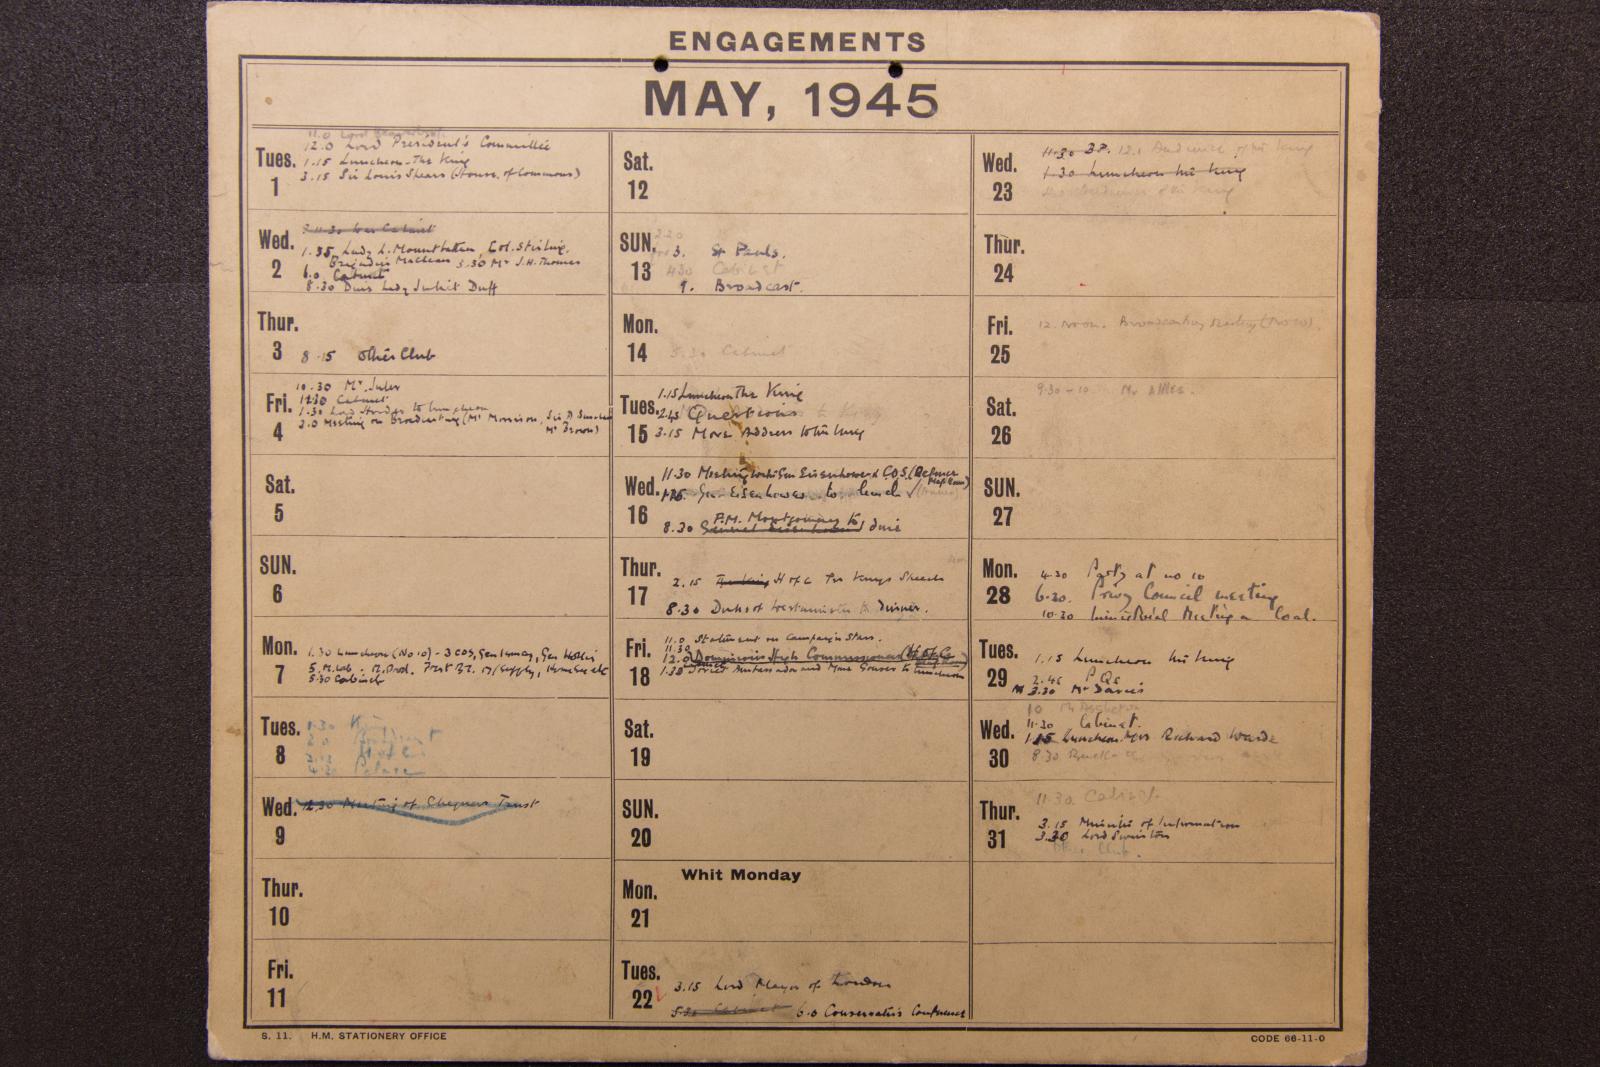 ENGAGEMENTS
MAY, 1945
Tues.
1
11.0 Lord
12.0 Lord President's Committee
1.15 Luncheon - The King
3.15 Sir Louis Spears (House of Commons)
Wed.
2
11.30 War Cabinet
1.35 Lady L. Mountbatten, Col. Stirling,
Brigadier Maclean 3.30 Mr J.H. Thomas
6.0 Cabinet
8.30 Dine Lady Juliet Duff
Thur.
3
8.15 Other Club
Fri.
4
10.30 Mr.
Cabinet
1.30 Lord to luncheon
3.0 Meeting on Broadcasting (Mr Morrison,
Mr Brown)
Sat.
5
SUN.
6
Mon.
7
1.30 Luncheon (No 10) - 3 COS, Gen Ismay, Gen Hollis
5. M. Lab. - M. Prod. Prest BT. M/Supply,
5.30 Cabinet
Tues.
8
1.30 King
President
H of C
4.30 Palace
Wed.
9
12.30 Meeting of Chequers Trust
Thur.
10
Fri.
11
Sat.
12
SUN.
13
2.20
3. St Pauls.
4.30 Cabinet
9. Broadcast.
Mon.
14
5.30 Cabinet
Tues.
15
1.15 Luncheon The King
2.45 Questions
3.15 Move Address to the King
Wed.
16
11.30 Meeting with Gen Eisenhower & C.O.S. (Defence
Map Room)
1.15 Gen. Eisenhower to lunch
F.M. Montgomery to
8.30 General Eisenhower dine
Thur.
17
2.15 The King H of C The Kings Speech
8.30 Duke of Westminster to Dinner.
Fri.
18
11.0 Statement on Campaign Stars.
11.30
12.0 Dominions High Commissioners (H of C
1.30 Soviet Ambassador and Mme Gousev to luncheon
Sat.
19
SUN.
20
Whit Monday
Mon.
21
Tues.
22
3.15 Lord Mayor of London
5.30 Cabinet 6.0 Conservative Conference
Wed.
23
11.30 Audience of the King
1.30 Luncheon the King
Thur.
24
Fri.
25
12. Noon. Broadcasting Meeting (No 10)
Sat.
26
9.30 - 10 Mr
SUN.
27
Mon.
28
4.30 Party at no 10
6.30. Privy Council meeting
10.30 Ministerial Meeting on Coal.
Tues.
29
1.15 Luncheon the King
2.45 P Qs
3.30 Mr Davies
Wed.
30
10 Mr
11.30 Cabinet.
1.15 Luncheon Mrs Richard Warde
8.30
Thur.
31
11.30. Cabinet
3.15 Minister of Information
3.30 Lord Swinton
Other Club.
S. 11. H.M. STATIONERY OFFICE
CODE 66-11-0